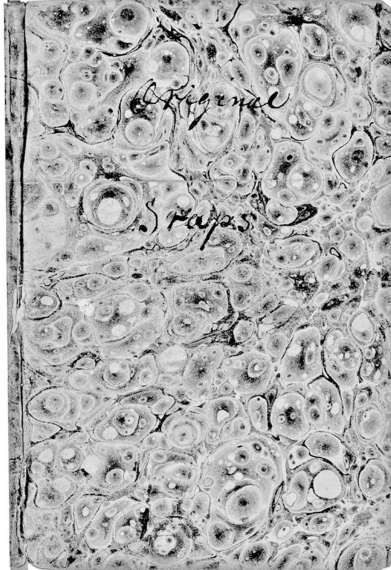 Original
Sraps